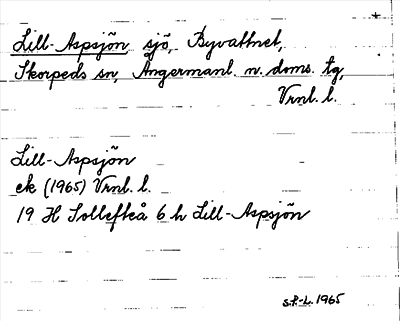 Lill-Aspsjön, sjö, Byvattnet,
Skorpeds sn, Ångermanl. n. doms. tg,
Vrnl. l.
Lill-Aspsjön
ek (1965) Vrnl. l.
19 H Sollefteå 6 h Lill-Aspsjön
S.P.-L. 1965